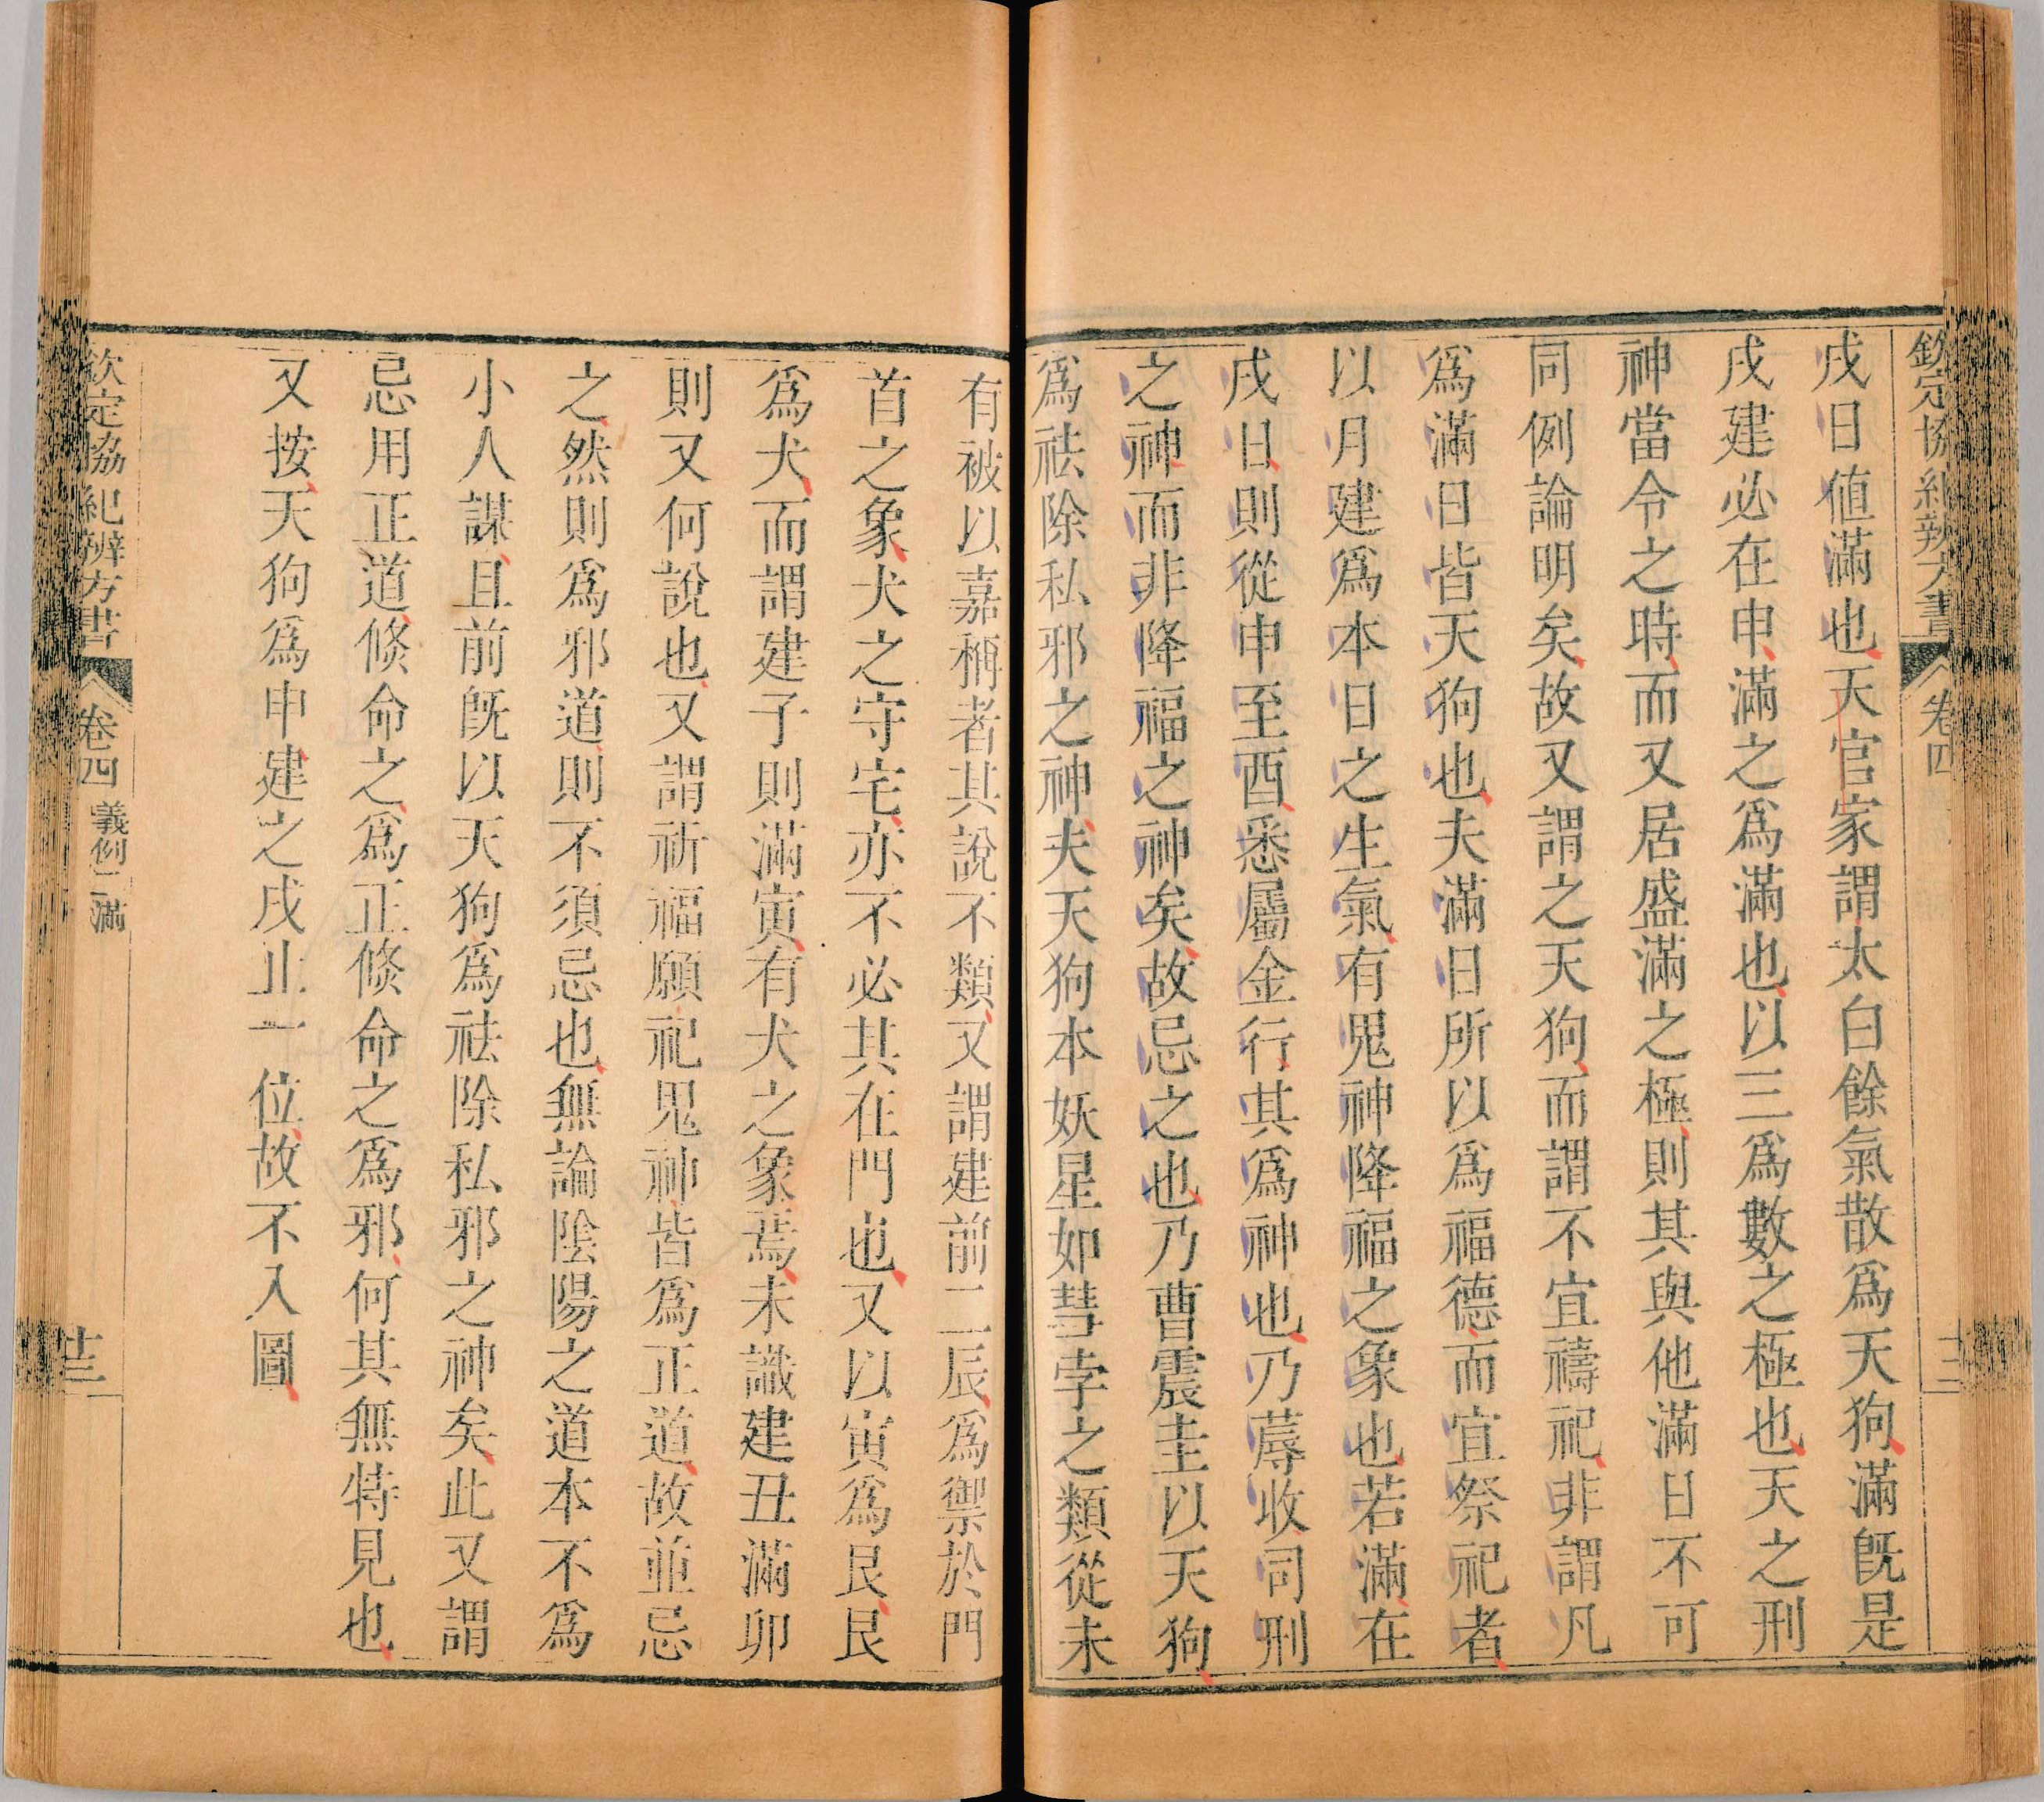 欽定協紀辨方書 卷四 十三
戌日值滿也天官家謂太白餘氣散爲天狗滿旣是
戌建必在申滿之爲滿也以三爲數之極也天之刑
神當令之時而又居盛滿之極則其與他滿日不可
同例論明矣故又謂之天狗而謂不宜禱祀非謂凡
爲滿日皆天狗也夫滿日所以爲福德而宜祭祀者
以月建爲本日之生氣有鬼神降福之象也若滿在
戌日則從申至酉悉屬金行其爲神也乃蓐收司刑
之神而非降福之神矣故忌之也乃曹震圭以天狗
爲祛除私邪之神夫天狗本妖星如彗孛之類從未
有被以嘉稱者其說不類又謂建前二辰爲禦於門
首之象犬之守宅亦不必其在門也又以寅爲艮艮
爲犬而謂建子則滿寅有犬之象焉未識建丑滿卯
則又何說也又謂祈福願祀鬼神皆爲正道故並忌
之然則爲邪道則不須忌也無論陰陽之道本不爲
小人謀且前旣以天狗爲祛除私邪之神矣此又謂
忌用正道倐命之爲正倐命之爲邪何其無特見也
又按天狗爲申建之戌止一位故不入圖
欽定協紀辨方書 卷四 義例二 滿 十三